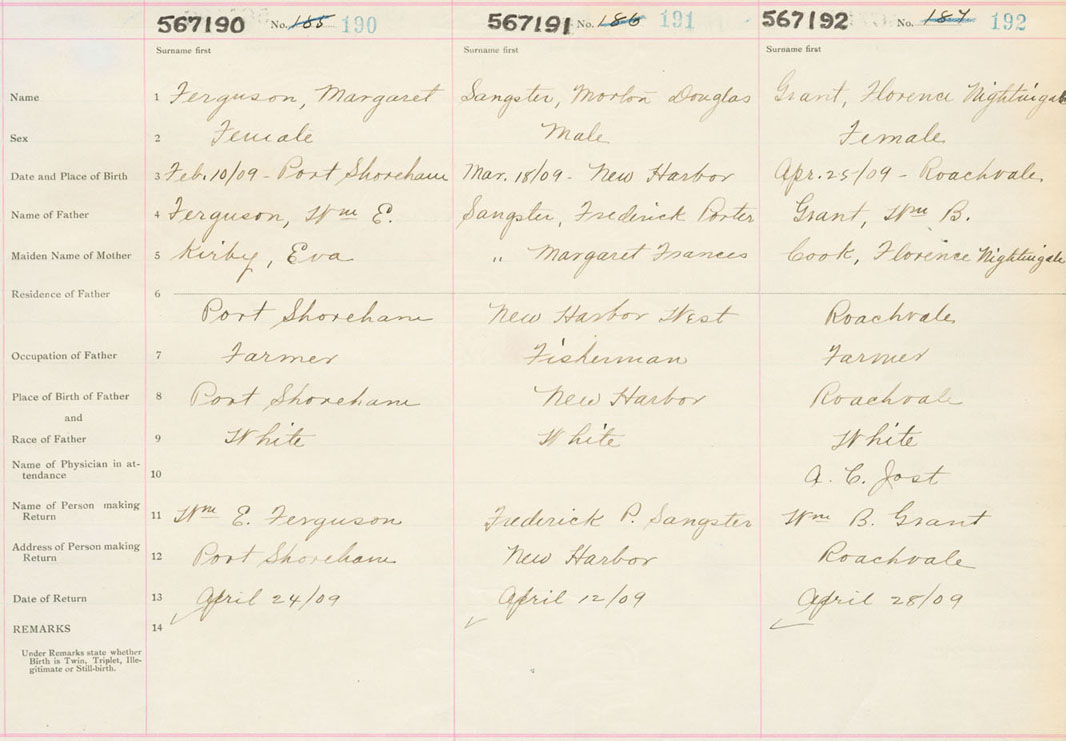 567190 No. 185 190 567191 No. 186 191 567192 No. 187 192
Surname first Surname first Surname first
Name 1 Ferguson, Margaret Sangster, Morton Douglas Grant, Florence Nightingale
Sex 2 Female Male Female
Date and Place of Birth 3 Feb. 10/09 - Port Shoreham Mar. 18/09 - New Harbor Apr. 25/09 - Roachvale
Name of Father 4 Ferguson, Wm E. Sangster, Frederick Porter Grant, Wm B.
Maiden Name of Mother 5 Kirby, Eva " Margaret Frances Cook, Florence Nightingale
Residence of Father 6
Port Shoreham New Harbor West Roachvale
Occupation of Father 7 Farmer Fisherman Farmer
Place of Birth of Father 8 Port Shoreham New Harbor Roachvale
and
Race of Father 9 White White White
Name of Physician in at-
tendance 10 A. C. Jost
Name of Person making
Return 11 Wm E. Ferguson Frederick P. Sangster Wm B. Grant
Address of Person making
Return 12 Port Shoreham New Harbor Roachvale
Date of Return 13 April 24/09 April 12/09 April 28/09
REMARKS 14
Under Remarks state whether
Birth is Twin, Triplet, Ille-
gitimate or Still-birth.